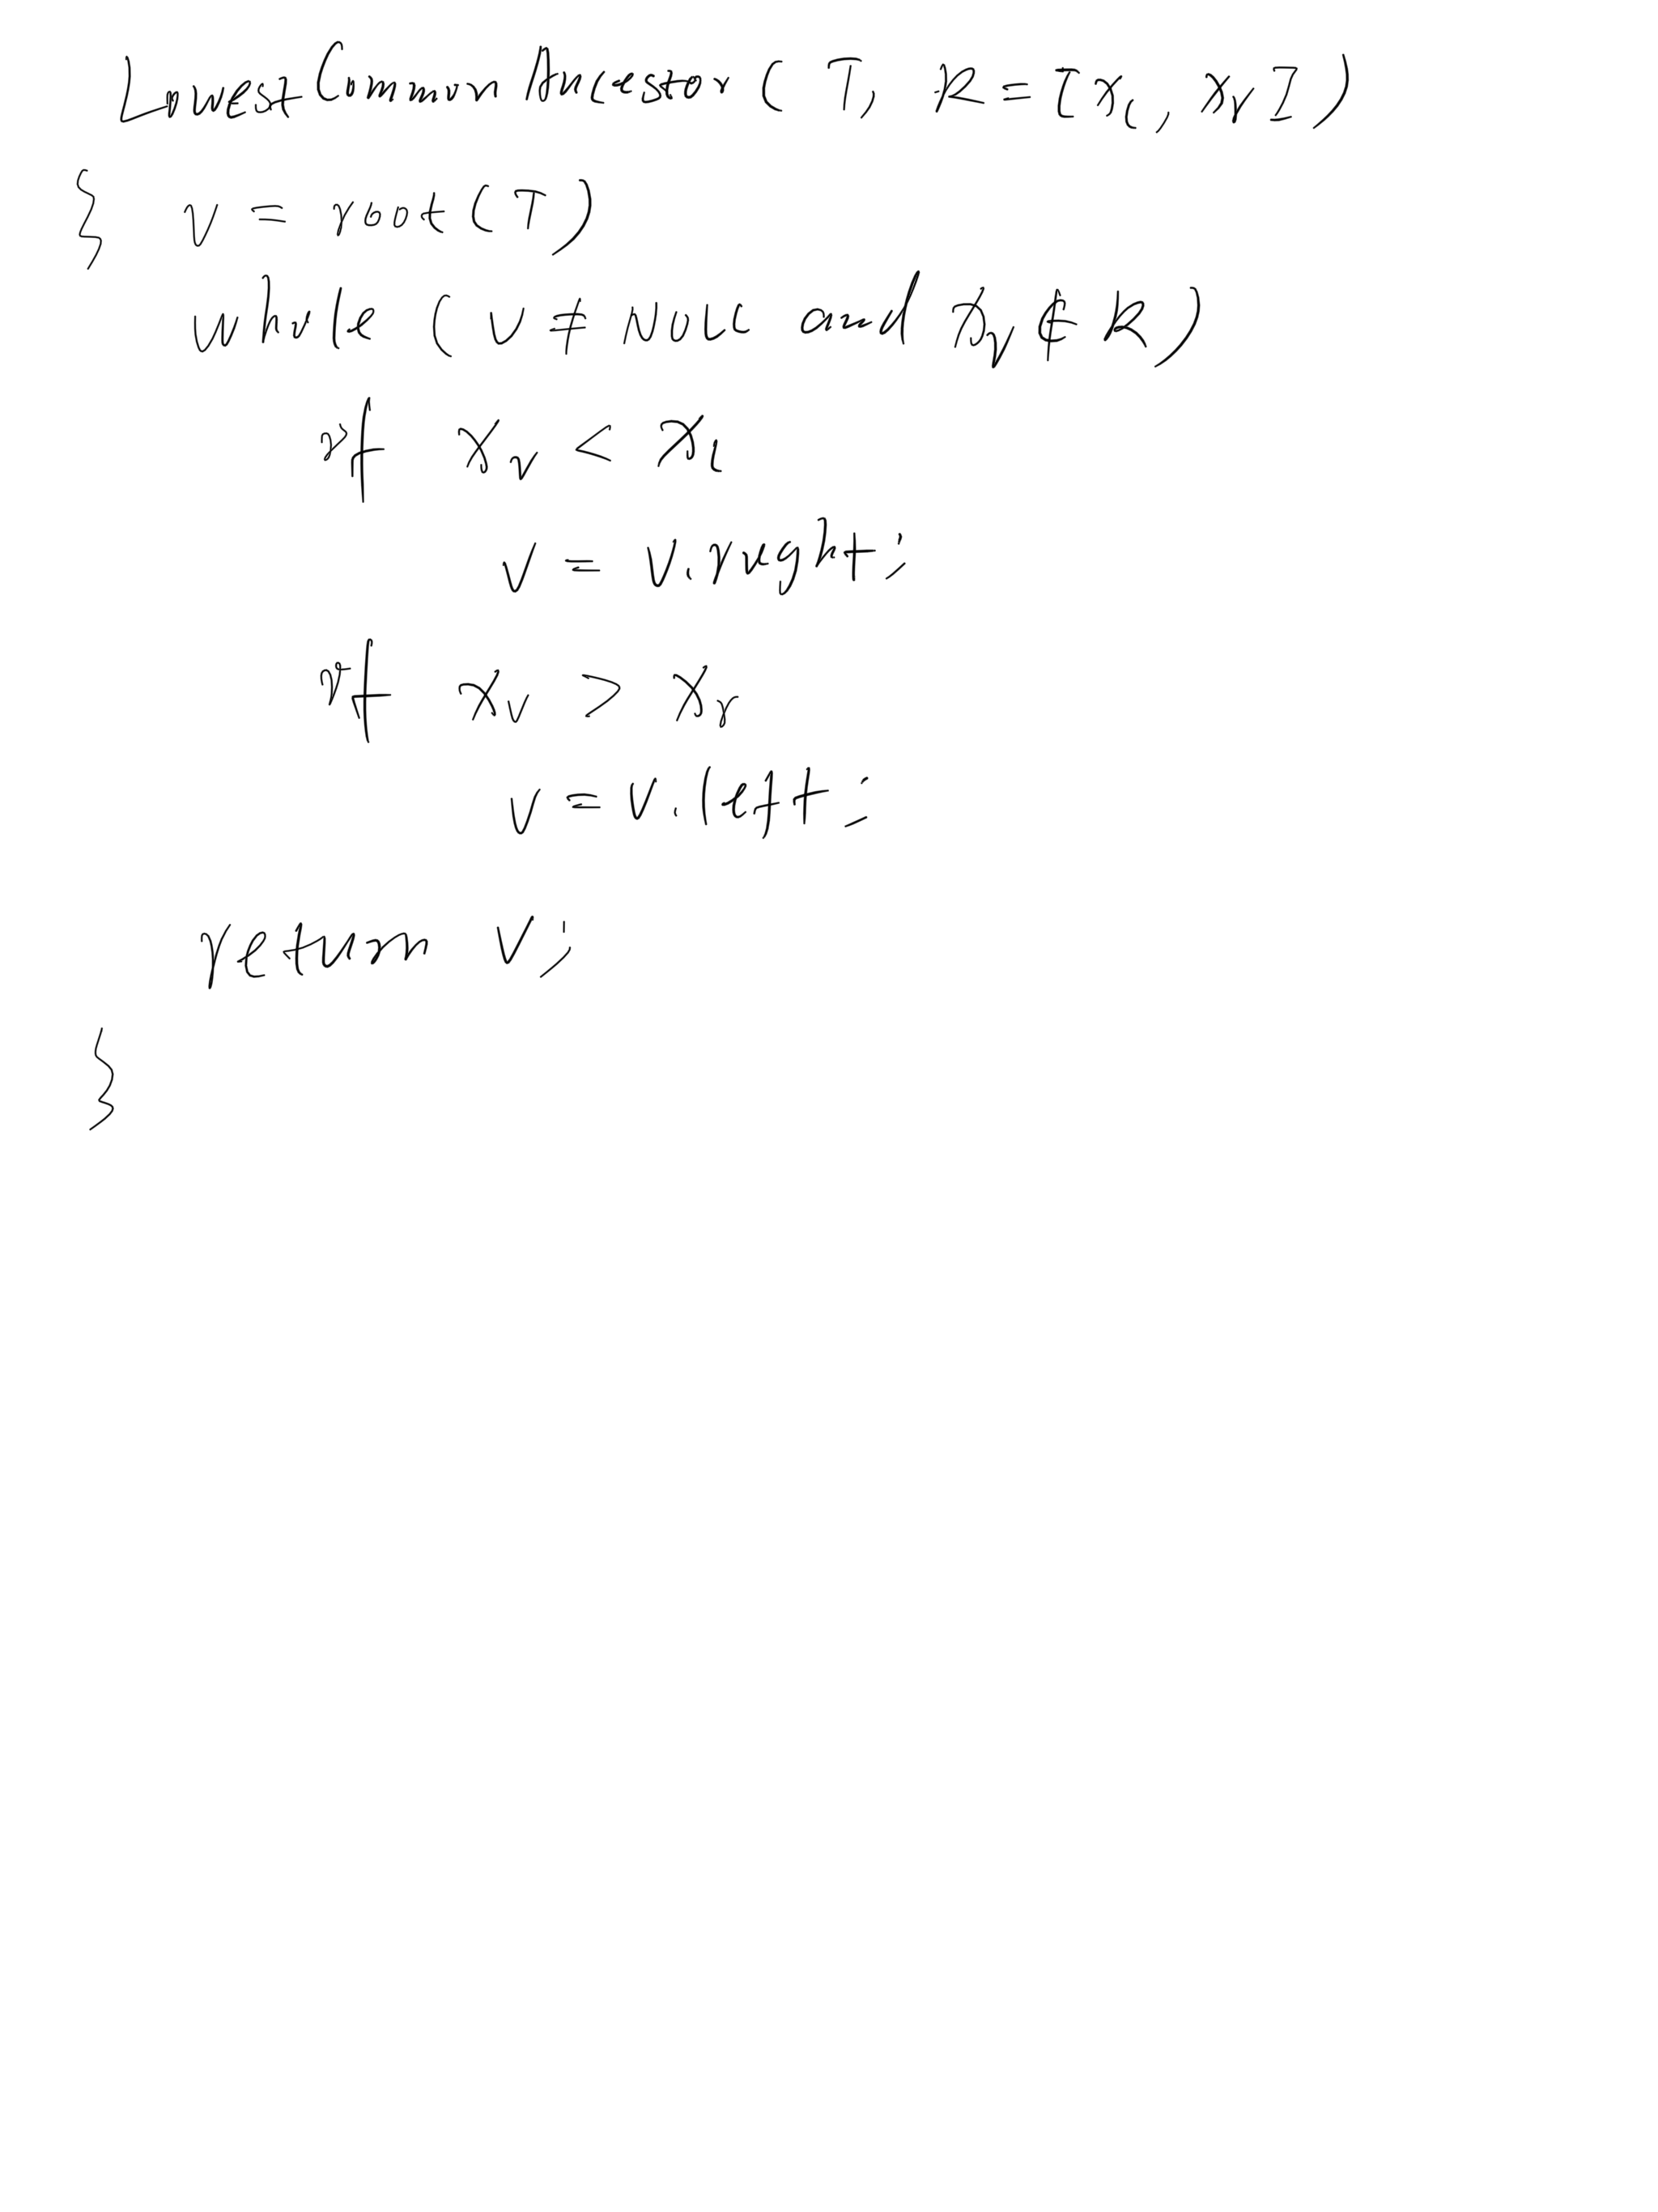 LowestCommonAncestor (T, R = [x_l, x_r])
{ v = root(T)
while (v ≠ NULL and x_v ∉ R)
if x_v < x_l
v = v.right;
if x_v > x_r
v = v.left;
return v;
}